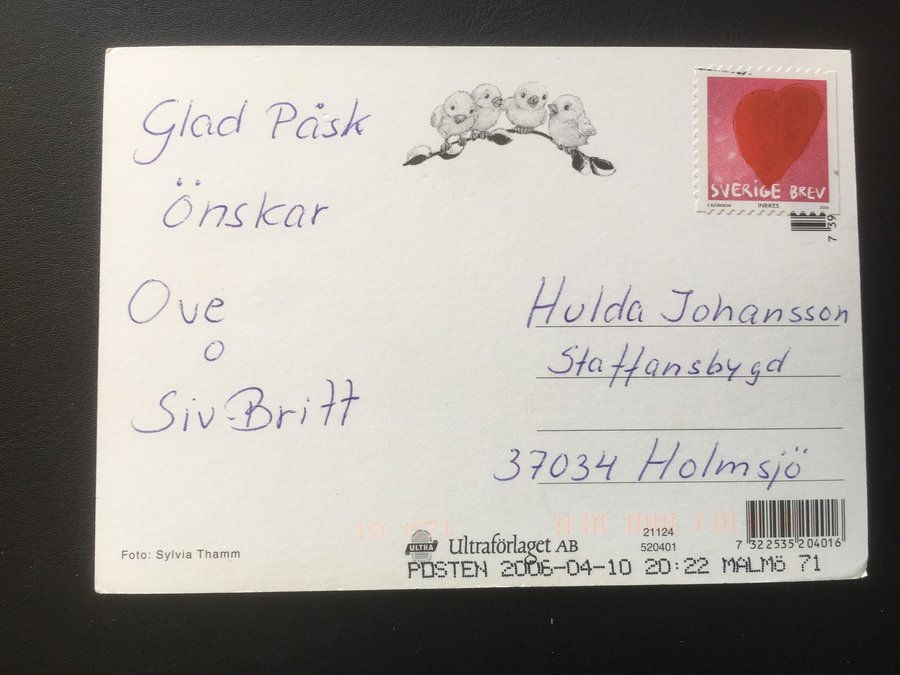 Glad Påsk
Önskar
Ove
o
Siv-Britt
SVERIGE BREV
S.BJÖRKBOM INRIKES 2006
7 39
Hulda Johansson
Staffansbygd
37034 Holmsjö
Foto: Sylvia Thamm
ULTRA
Ultraförlaget AB
21124
520401
7 322535 204016
POSTEN 2006-04-10 20:22 MALMö 71